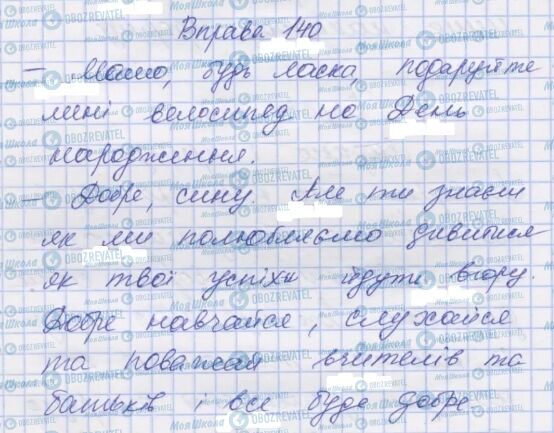 Вправа 140
– Мамо, будь ласка, подаруйте
мені велосипед на День
народження.
– Добре, сину. Але ти знаєш
як ми полюбляємо дивитися
як твої успіхи йдуть вгору.
Добре навчайся, слухайся
та поважай вчителів та
батьків і все буде добре.